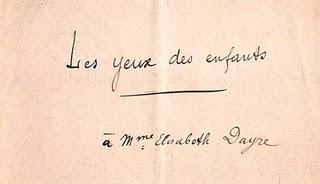 Les yeux des enfants
à Mme Elisabeth Dayre